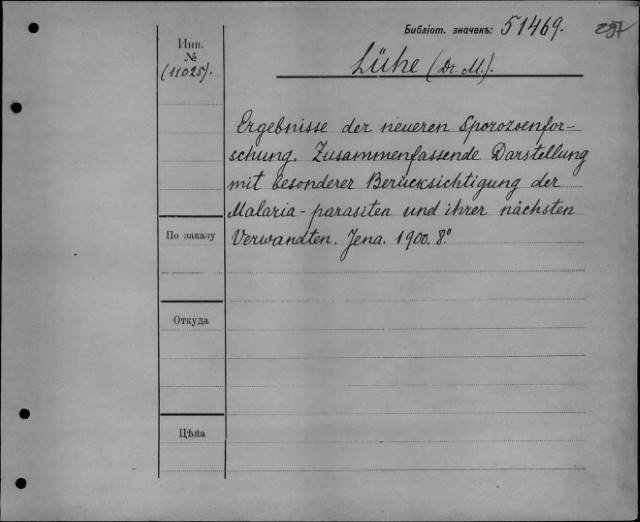 Библіот. значекъ: 51469.
Инв.
№
(11025).
Lühe (Dr. M.).
Ergebnisse der neueren Sporozoenfor-
schung. Zusammenfassende Darstellung
mit besonderer Berücksichtigung der
Malaria-parasiten und ihrer nächsten
Verwandten. Jena. 1900. 8.°
По заказу
Откуда
Цѣна